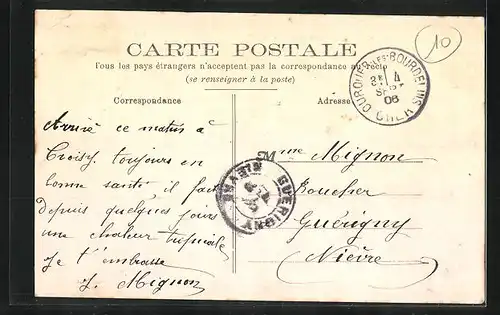 CARTE POSTALE
Tous les pays étrangers n'acceptent pas la correspondance au recto
(se renseigner à la poste)
Correspondance
Adresse
10
OUROUER LES BOURDELINS
4
SEPT
06
CHER
Arrivé ce matin à
Croisy. toujours en
bonne santé il fait
depuis quelques jours
une chaleur tropicale
Je t'embrasse
J. Mignon
Mme Mignon
Boucher
Guérigny
Nièvre
GUERIGNY
NIEVRE